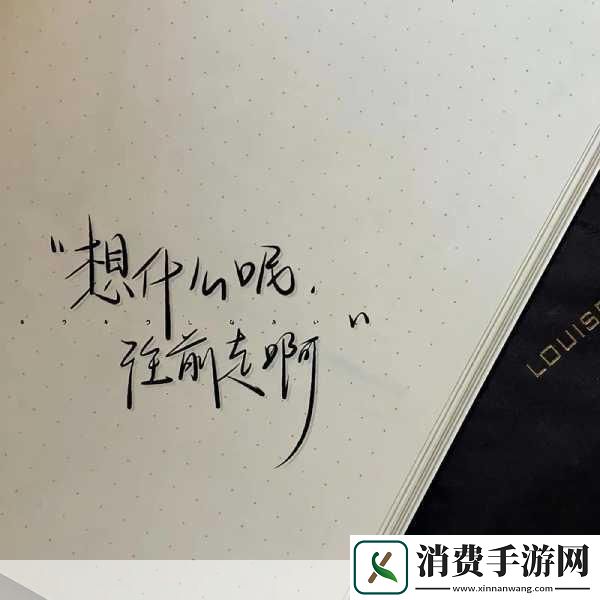 “想什么呢.
往前走啊”
LOUISE
消费手游网
www.xinnanwang.com